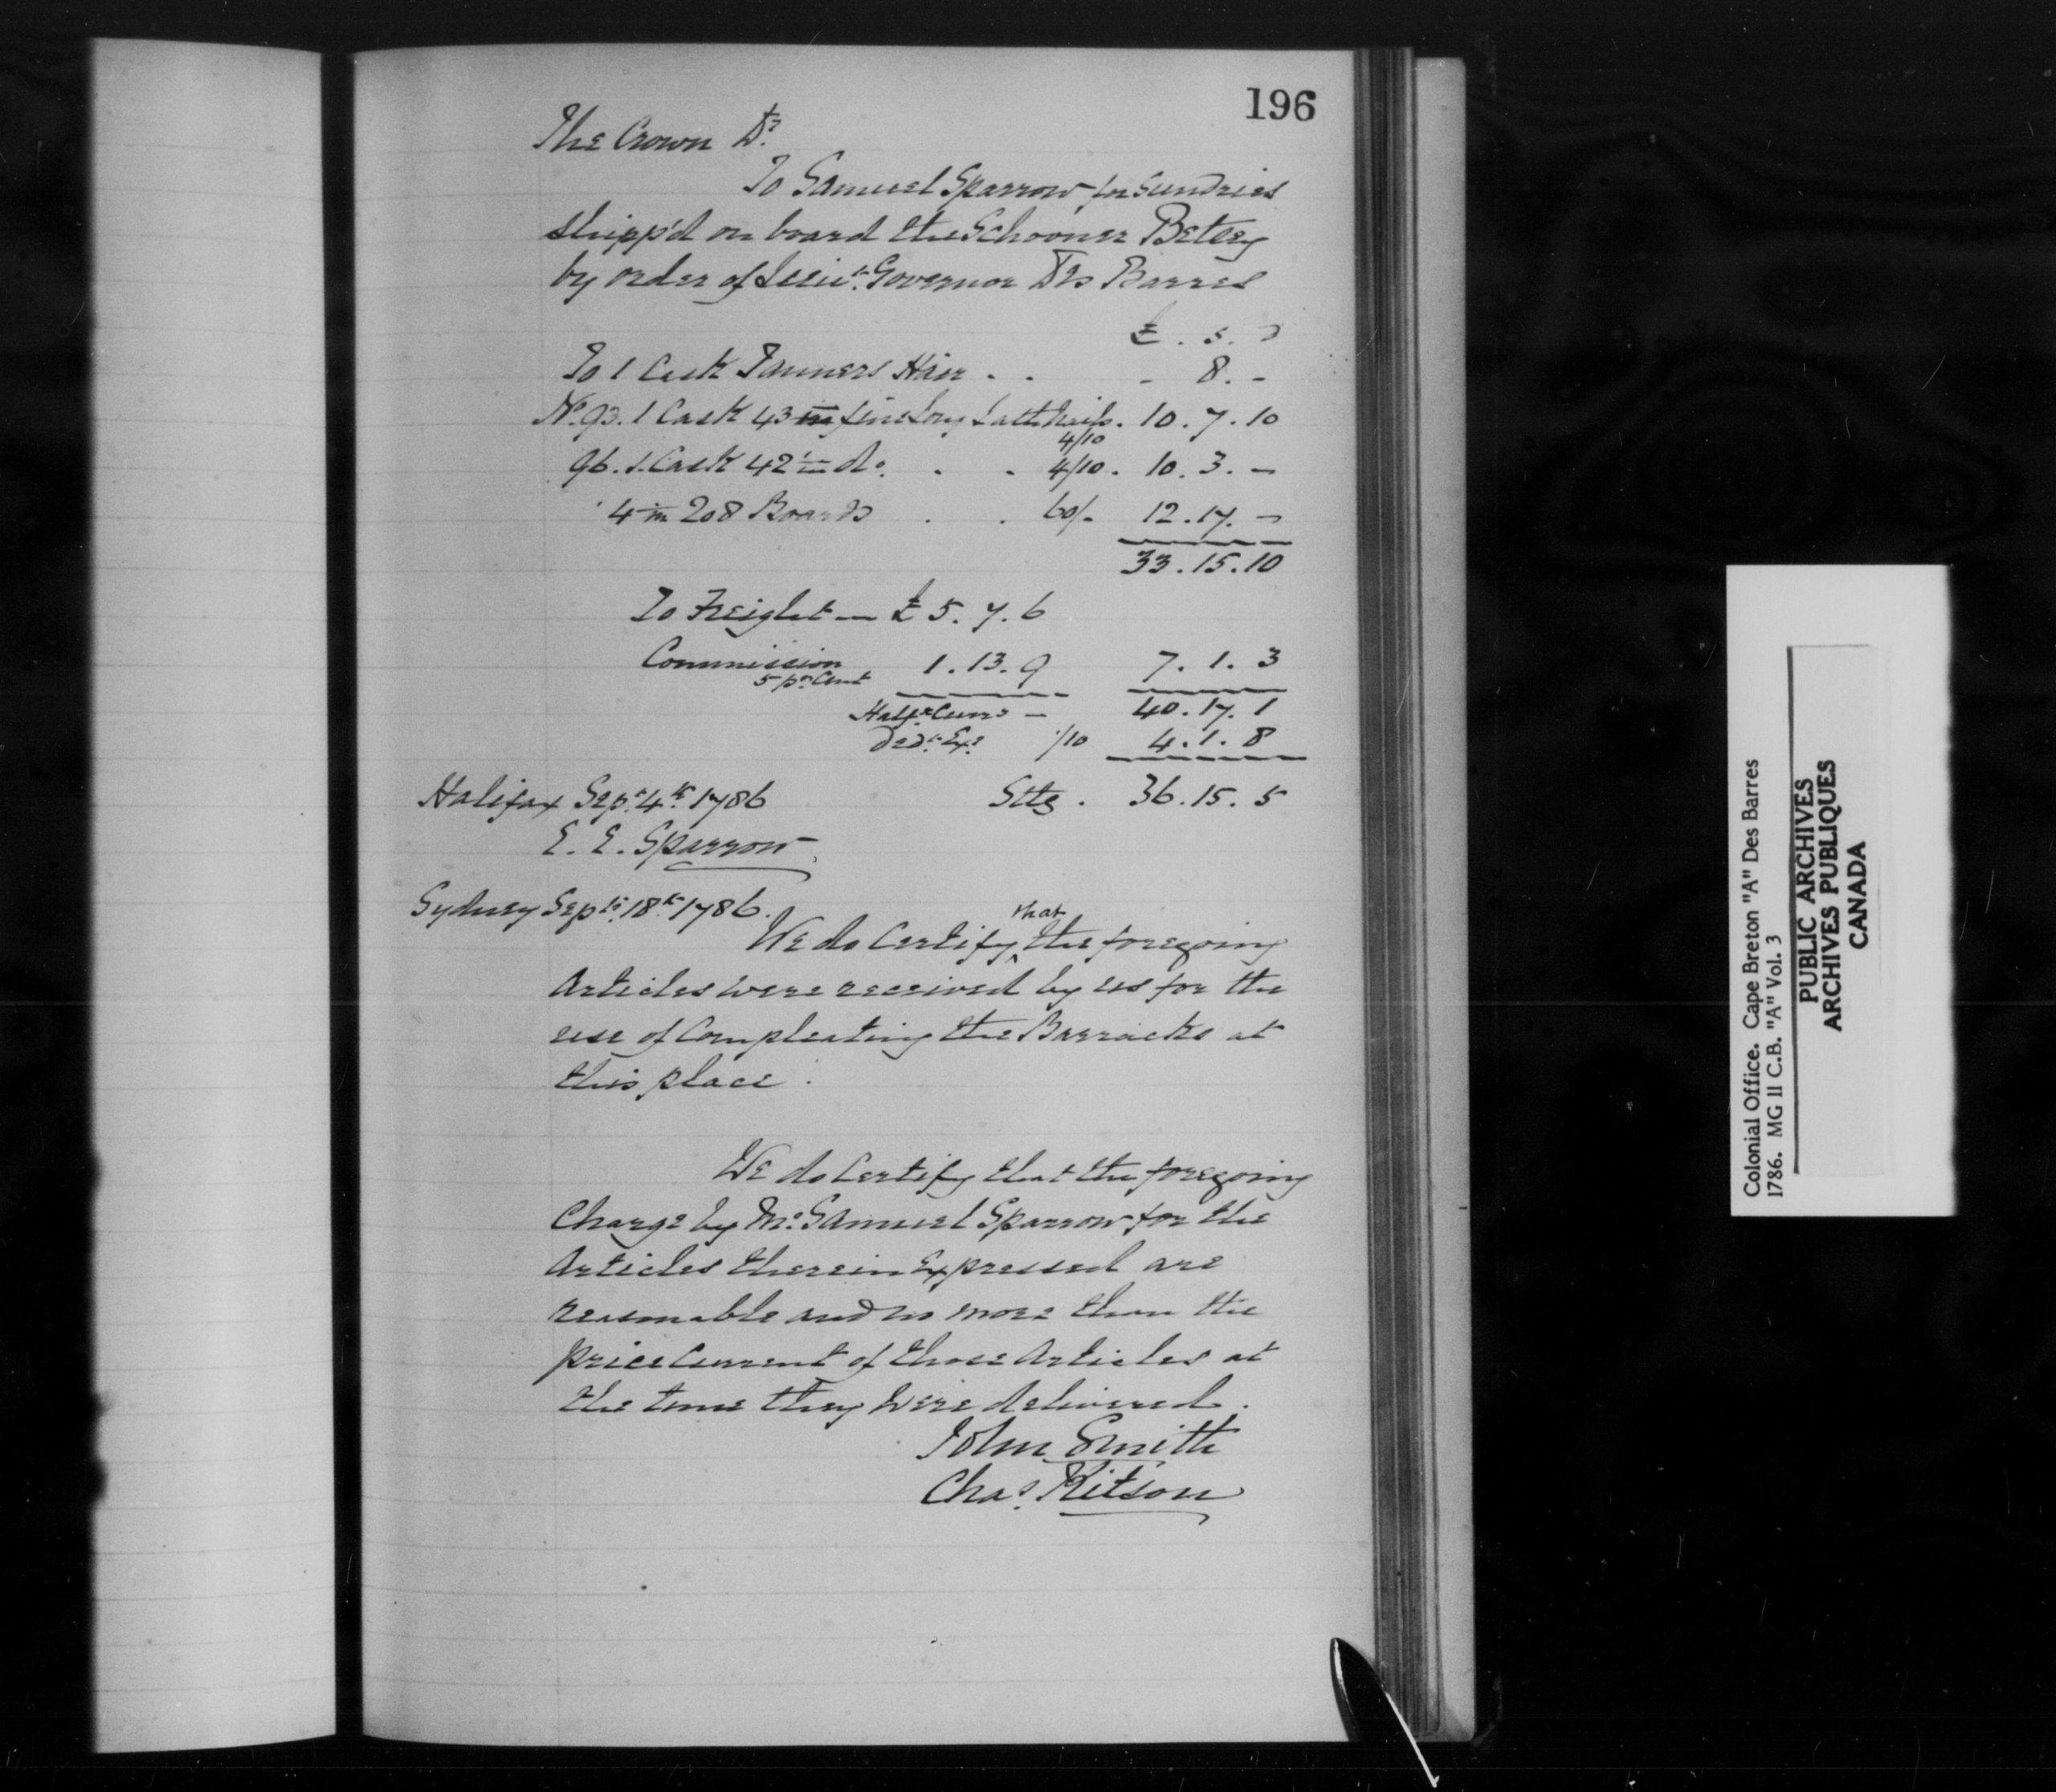 196
The Crown Dr.
To Samuel Sparrow for Sundries
shipp'd on board the Schooner Betsey
by order of Lieut. Governor Des Barres
£ . s. d
To 1 Cask Tanners Hair . . - 8. -
No. 93. 1 Cask 43 m fine long Lath Nails. 10. 7. 10
4/10
96. 1. Cask 42 m do. . . 4/10. 10. 3. -
4 m 208 Boards . . 60/- 12. 17. -
33. 15. 10
To Freight — £ 5. 7. 6
Commission 1. 13. 9 7. 1. 3
5 pr. Cent
Halfx. Curry — 40. 17. 1
Dedt. Ex. 1/10 4. 1. 8
Halifax Sepr. 4th. 1786 Sttg. 36. 15. 5
E. E. Sparrow
Sydney Septr. 18th. 1786.
We do Certify that the foregoing
Articles were received by us for the
use of Compleating the Barracks at
this place.
We do Certify that the foregoing
Charge by Mr. Samuel Sparrow for the
Articles therein Expressed are
reasonable and no more than the
price Current of those Articles at
the time they were delivered.
John Smith
Chas. Kitson
Colonial Office. Cape Breton "A" Des Barres
1786. MG 11 C.B. "A" Vol. 3
PUBLIC ARCHIVES
ARCHIVES PUBLIQUES
CANADA